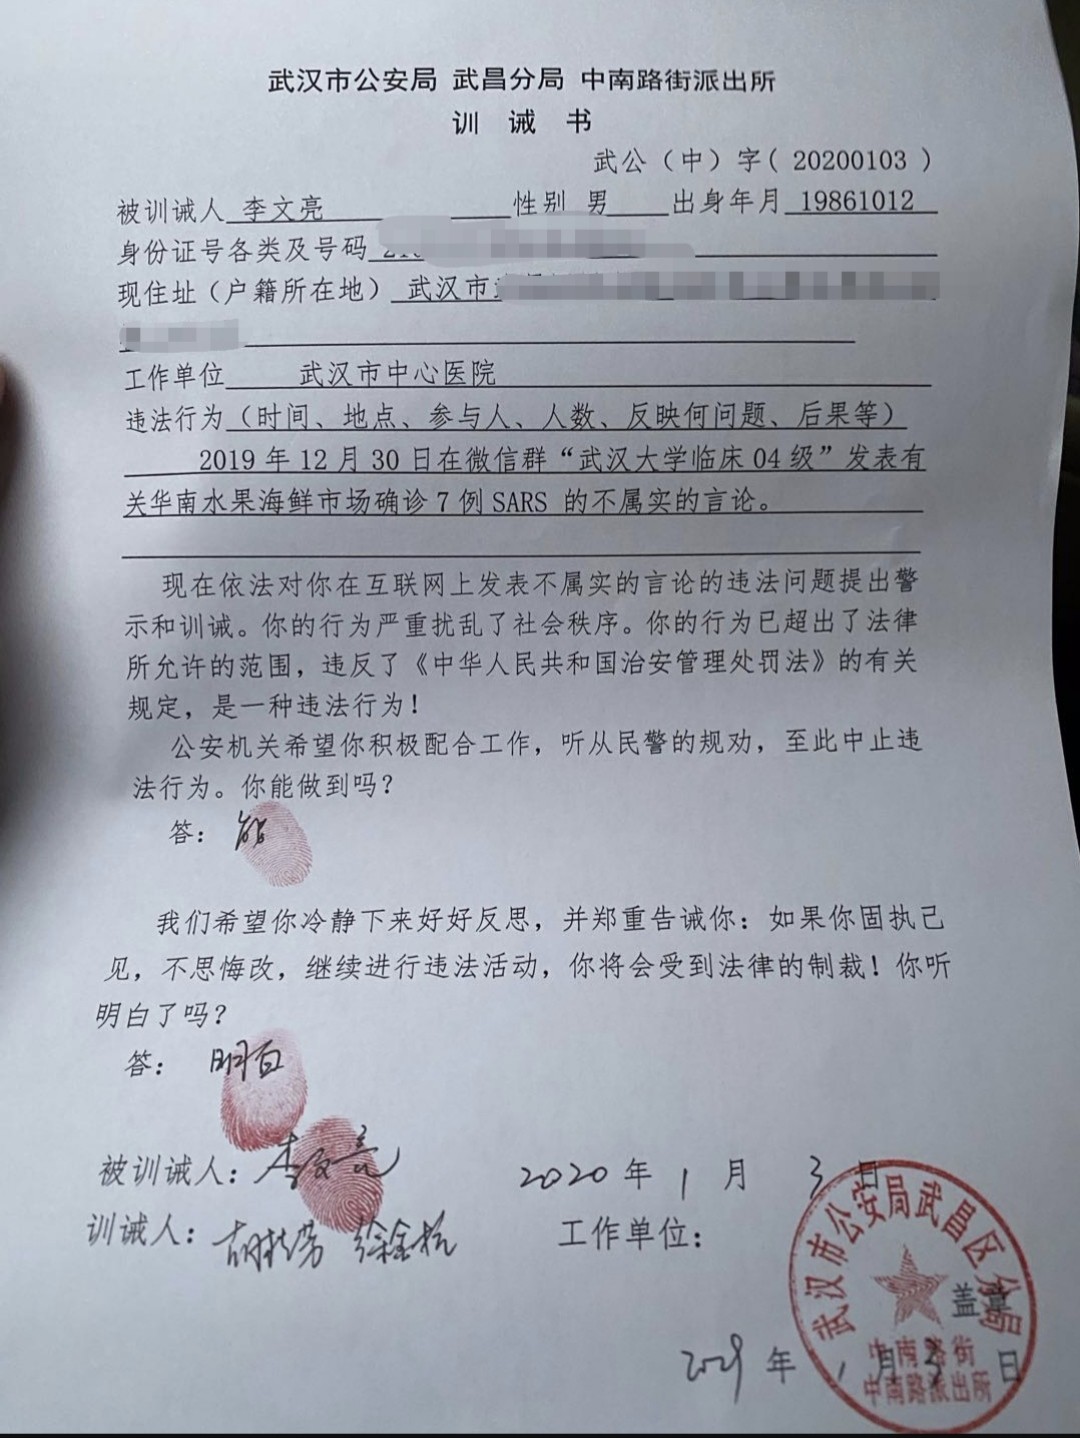 武汉市公安局 武昌分局 中南路街派出所
训 诫 书
武公（中）字( 20200103 )
被训诫人 李文亮 性别 男 出身年月 19861012
身份证号各类及号码
现住址（户籍所在地） 武汉市
工作单位 武汉市中心医院
违法行为（时间、地点、参与人、人数、反映何问题、后果等）
2019 年 12 月 30 日在微信群“武汉大学临床 04 级”发表有
关华南水果海鲜市场确诊 7 例 SARS 的不属实的言论。
现在依法对你在互联网上发表不属实的言论的违法问题提出警
示和训诫。你的行为严重扰乱了社会秩序。你的行为已超出了法律
所允许的范围，违反了《中华人民共和国治安管理处罚法》的有关
规定，是一种违法行为！
公安机关希望你积极配合工作，听从民警的规劝，至此中止违
法行为。你能做到吗？
答： 能
我们希望你冷静下来好好反思，并郑重告诫你：如果你固执己
见，不思悔改，继续进行违法活动，你将会受到法律的制裁！你听
明白了吗？
答： 明白
被训诫人： 李文亮 2020 年 1 月 3 日
训诫人： 工作单位：
武汉市公安局武昌区分局
盖章
中南路街
中南路派出所
年 1 月 3 日